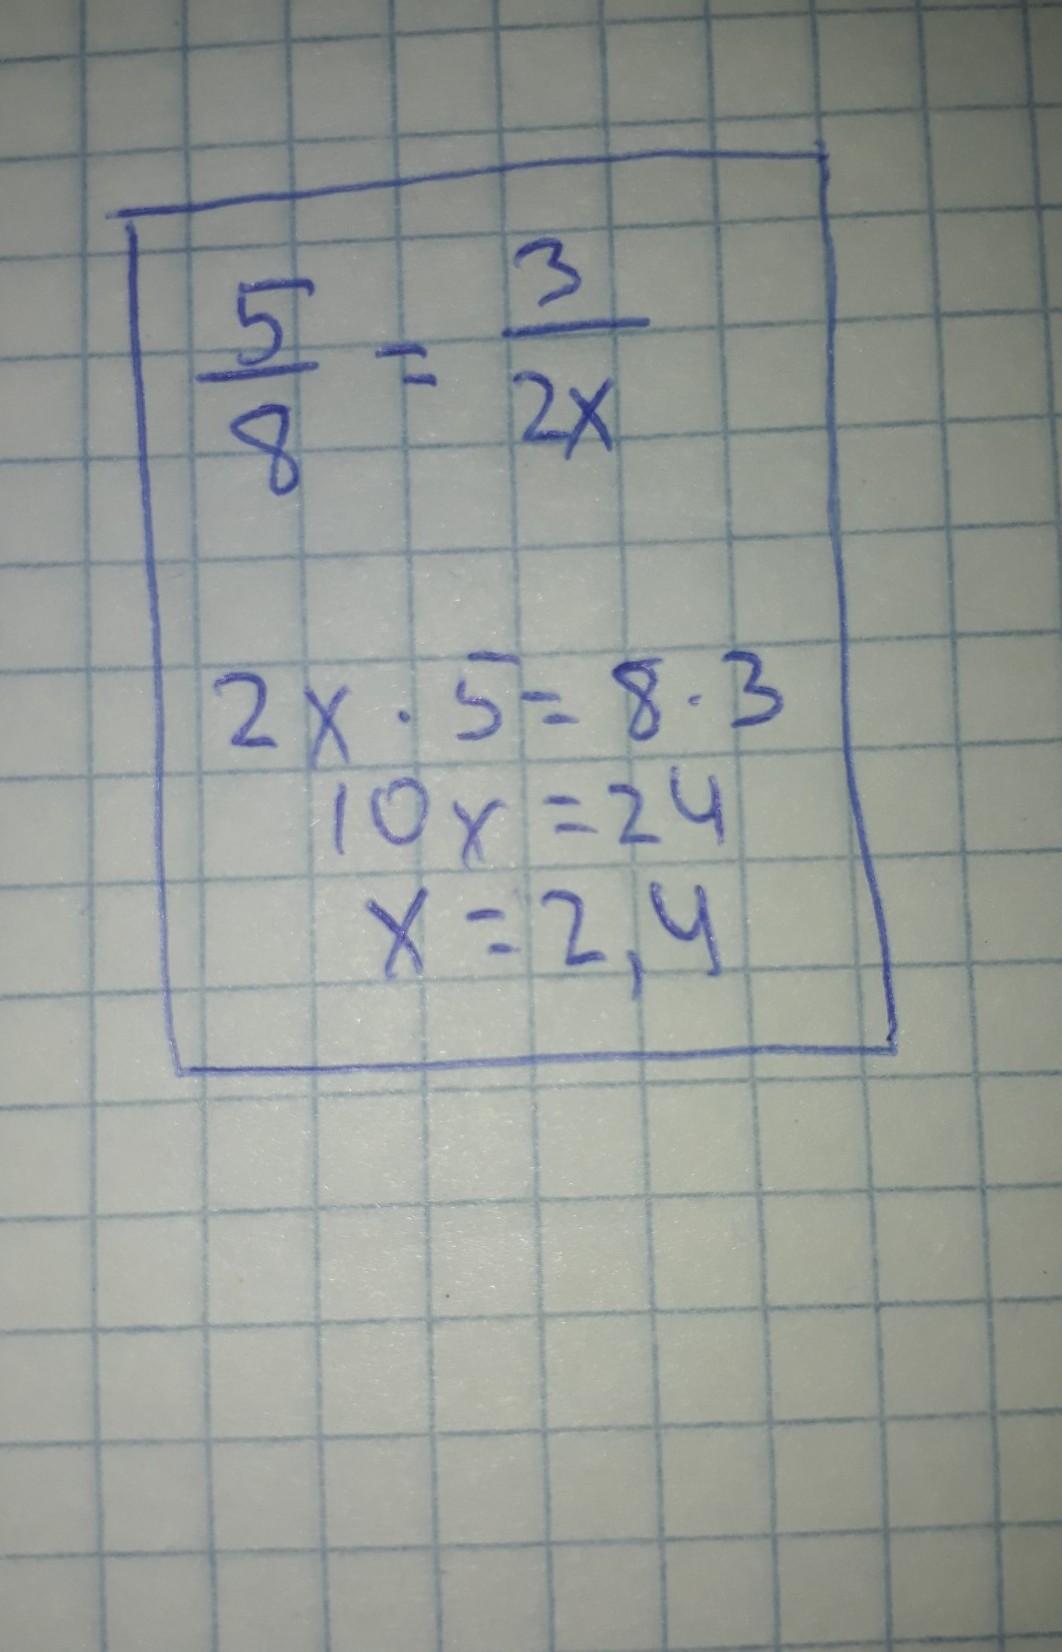 5/8 = 3/2x
2x · 5 = 8 · 3
10x = 24
x = 2,4